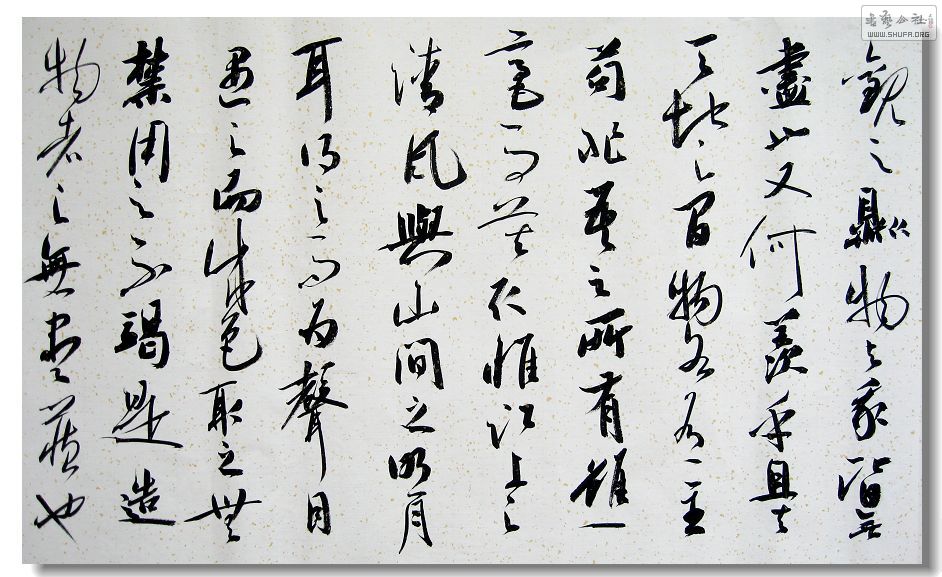 觀之則物与我皆無
盡也又何羨乎且夫
天地之間物各有主
苟非吾之所有雖一
毫而莫取惟江上之
清風與山間之明月
耳得之而為聲目
遇之而成色取之無
禁用之不竭是造
物者之無盡藏也
書藝公社
WWW.SHUFA.ORG